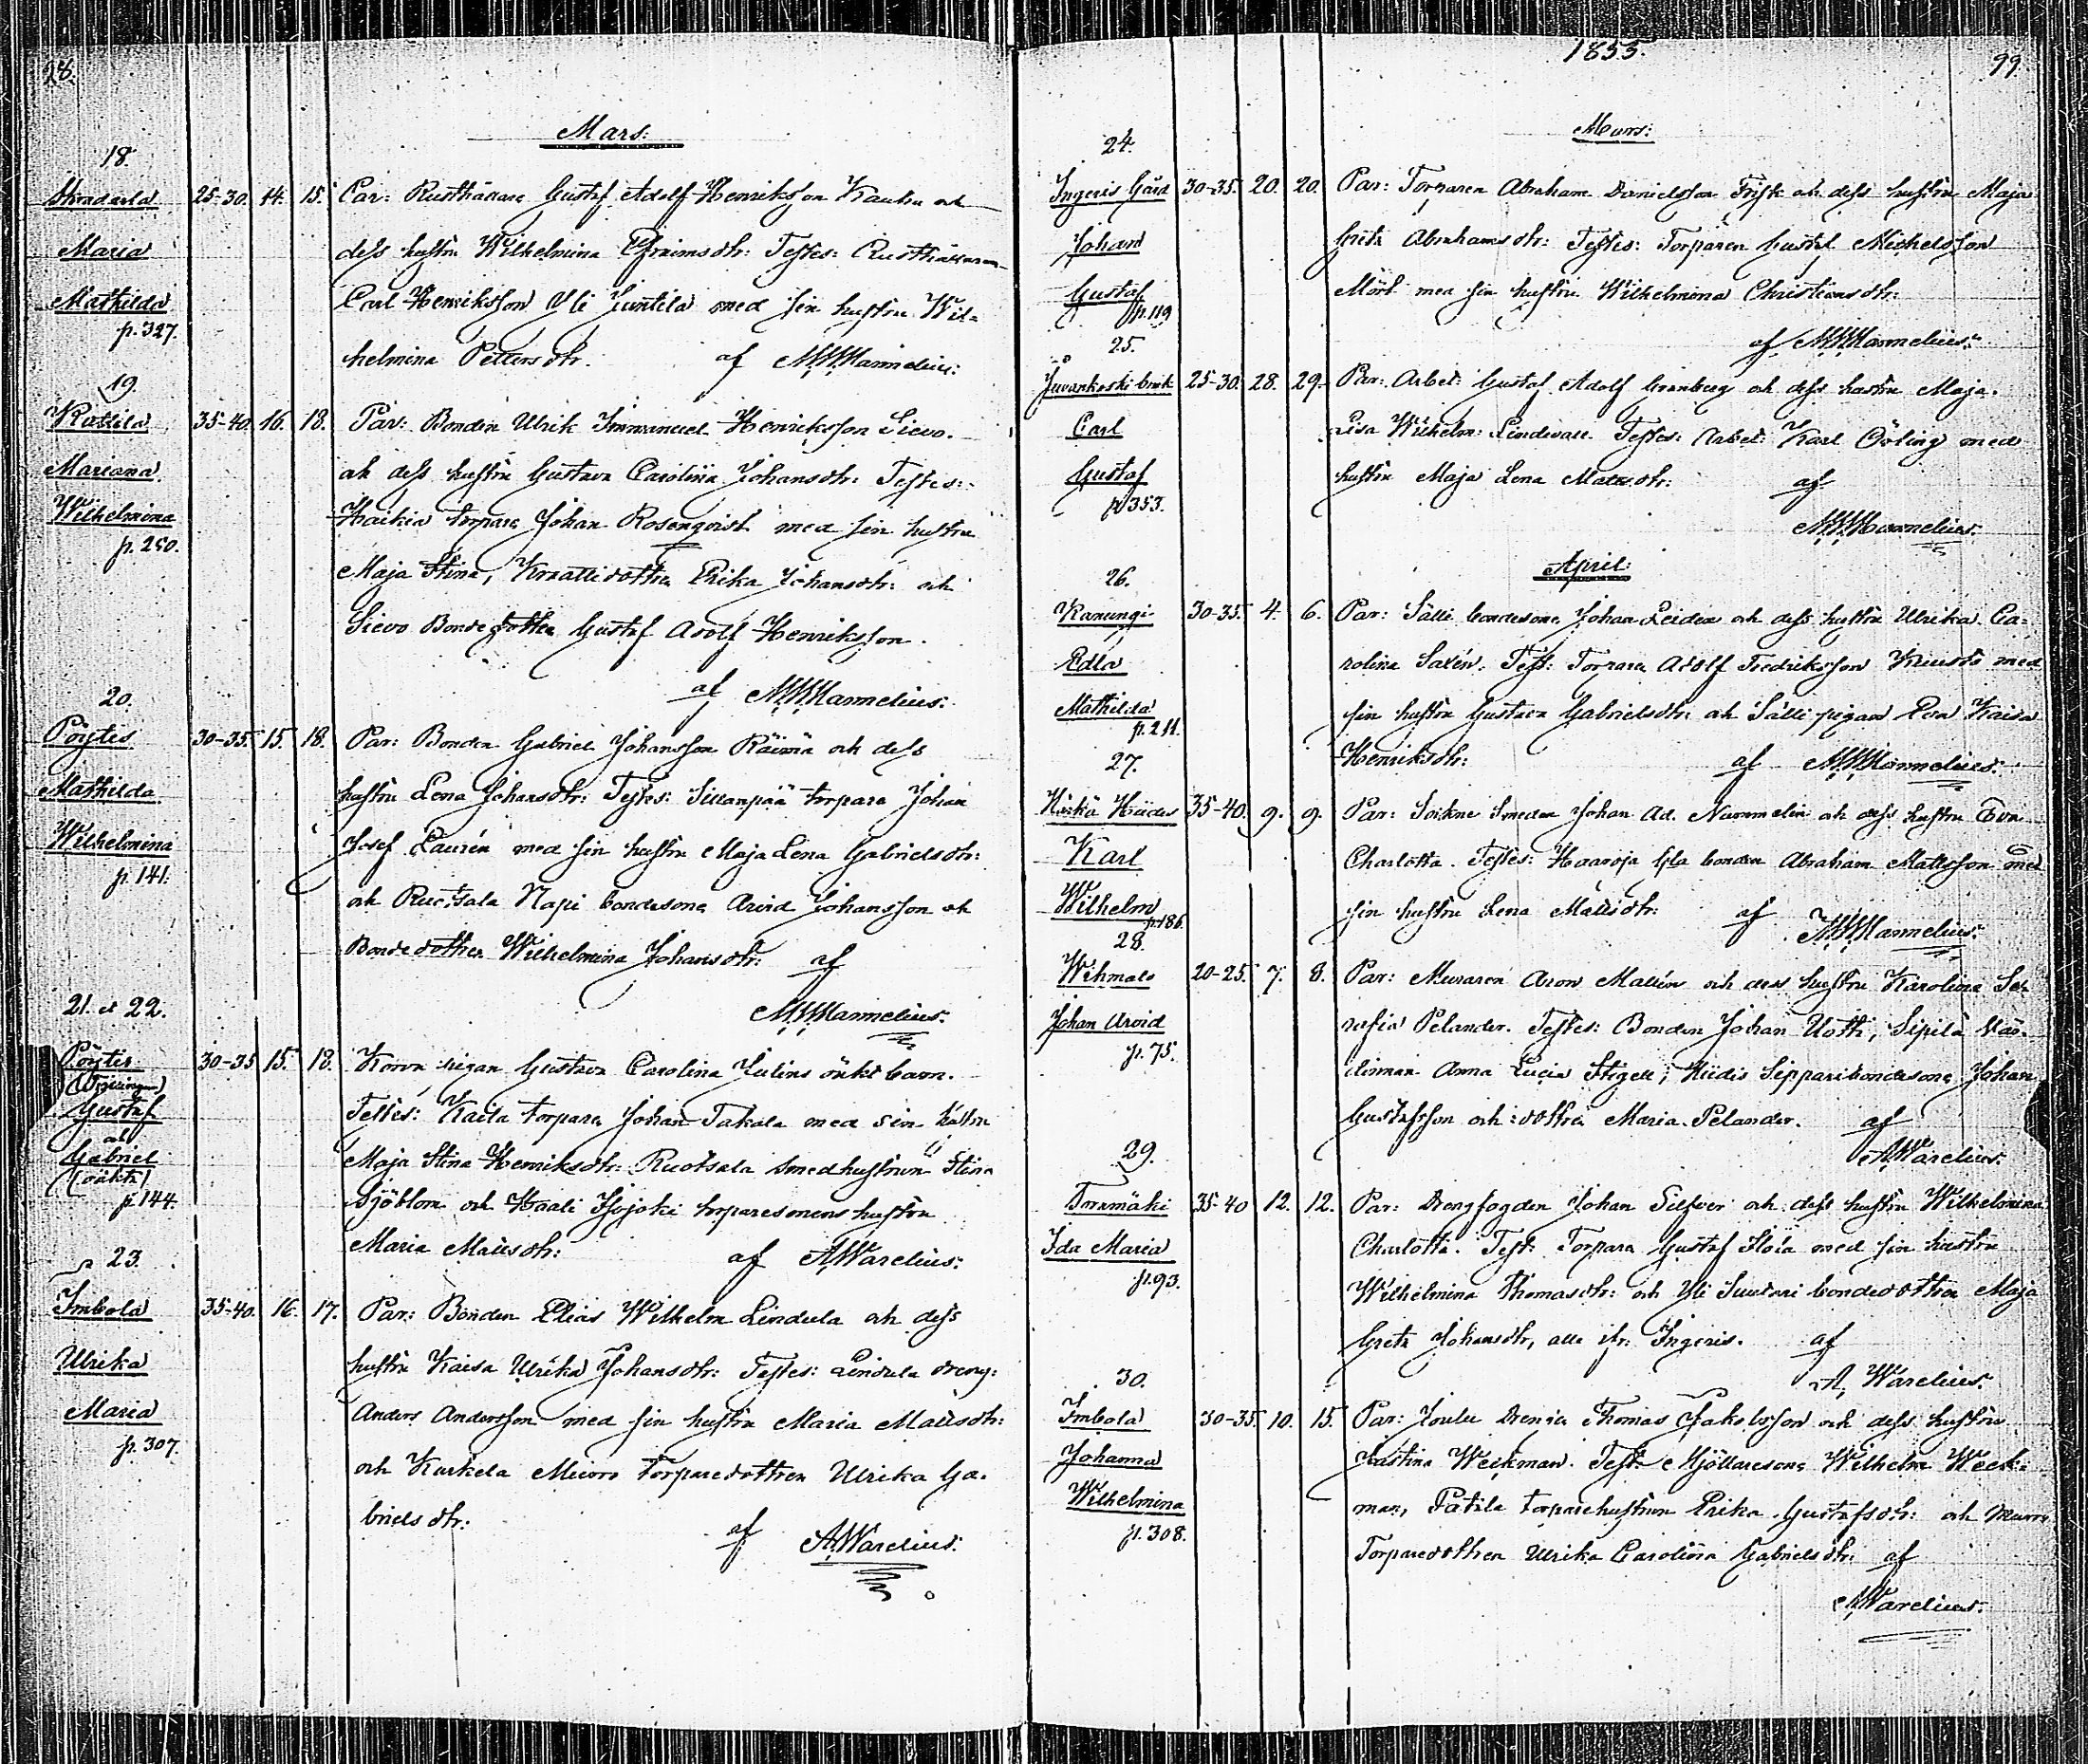 28.
Mars:
18.
25-30. 14. 15. Par: Rusthållare Gustaf Adolf Henriksson och
Maria dess hustru Wilhelmina Efraimsdtr: Testes: Rusthållaren
Mathilda Carl Henriksson Yli Juntila med sin hustru Wil=
p. 327. helmina Pettersdtr. af
19.
Kattila 35-40. 16. 18. Par: Bonden Ulrik Immanuel Henriksson Sievo.
Mariana och dess hustru Gustava Carolina Johansdtr: Testes:
Wilhelmina torpare Johan Rosenqvist med sin hustru
p. 250. Maja Stina, Erika Johansdtr: och
Sievo Gustaf Adolf Henriksson.
af
20.
Pöytis 30-35. 15. 18. Par: Bonden Gabriel Johansson och dess
Mathilda hustru Lena Johansdtr: Testes: Sillanpää torpare Johan
Wilhelmina Josef Laurén med sin hustru Maja Lena Gabrielsdtr:
p. 141. och Ruotsala Napi bondesone Arvid Johansson och
Bondedottren Wilhelmina Johansdtr: af
21. et 22.
Pöytis 30-35 15. 18. pigan Gustava Carolina Julins oäkt barn.
Gustaf Testes: torpare Johan Takala med sin hustru
och Maja Stina Henriksdtr: Ruotsala smedhustrun Stina
Gabriel
(oäkta) Sjöblom och torparesonens hustru
p. 144. Maria Mattsdtr: af A. Warelius:
23.
Imbola 35-40. 16. 17. Par: Bonden Elias Wilhelm Lindula och dess
Ulrika hustru Kaisa Ulrika Johansdtr: Testes: Lindula dreng:
Maria Anders Andersson med sin hustru Maria Mattsdtr:
p. 307. och Kurkela torparedottren Ulrika Ga-
brielsdtr: af A. Warelius:
1855.
99.
Mars:
24.
Ingeris Gård 30-35. 20. 20. Par: Torparen Abraham Danielsson Frisk och dess hustru Maja
Johan Greta Abrahamsdtr: Testes: Torparen Gustaf Michelsson
Gustaf Mört med sin hustru Wilhelmina Christiansdtr:
p. 119 af
25.
Juvankoski bruk 25-30. 28. 29. Par: Arbet: Gustaf Adolf Granberg och dess hustru Maja
Carl Lisa Wilhelm: Testes: Arbet: Karl med
Gustaf hustru Maja Lena Mattsdtr: af
p. 353.
April:
26.
30-35. 4. 6. Par: Sälli bondesone Johan och dess hustru Ulrika Ca-
Edla rolina Saxén. Test: Torpare Adolf Fredriksson med
Mathilda sin hustru Gustava Gabrielsdtr: och Sälli pigan Eva Kaisa
p. 211. Henriksdtr: af
27.
35-40. 9. 9. Par: Sockne Smeden Johan Ad. Nummelin och dess hustru Eva
Karl Charlotta. Testes: bonden Abraham Mattsson med
Wilhelm sin hustru Lena Mattsdtr: af
p. 186.
28.
20-25. 7. 8. Par: Muraren Aron Mattsson och dess hustru Karolina Se-
Johan Arvid rafia Pelander. Testes: Bonden Johan Uotti, Sipilä
p. 75. Anna Lucia Stigell, bondesone Johan
Gustafsson och dottren Maria Pelander. af
A. Warelius:
29.
Tornmäki 35-40 12. 12. Par: Drengfogden Johan Silfver och dess hustru Wilhelmina
Ida Maria Charlotta. Test: Torpare Gustaf med sin hustru
p. 93. Wilhelmina Thomasdtr: och Yli Suutari bondedottren Maja
Greta Johansdtr, alla fr: Ingeris. af
A. Warelius:
30.
Imbola 30-35. 10. 15. Par: Drengen Thomas Jakobsson och dess hustru
Johanna Kristina Weckman. Test: Mjöllaresone Wilhelm Weck-
Wilhelmina man, torparehustrun Erika Gustafsdtr: och
p. 308. Torparedottren Ulrika Carolina Gabrielsdtr: af
A. Warelius: